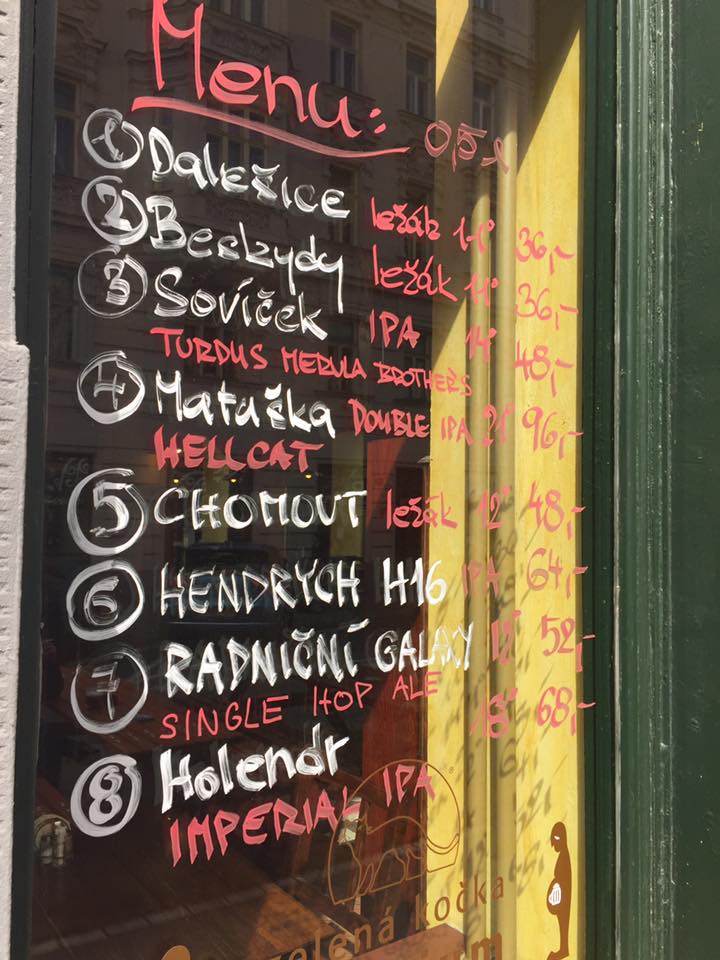 Menu: 0,5 l
1 Dalešice ležák 11° 36,-
2 Beskydy ležák 11° 36,-
3 Sovíček IPA 14° 48,-
TURDUS MERULA BROTHERS
4 Matuška DOUBLE IPA 21° 96,-
HELLCAT
5 CHOMOUT ležák 12° 48,-
6 HENDRYCH H16 IPA 64,-
7 RADNIČNÍ GALAXY 52,-
SINGLE HOP ALE
8 Holendr 18° 68,-
IMPERIAL IPA
zelená kočka